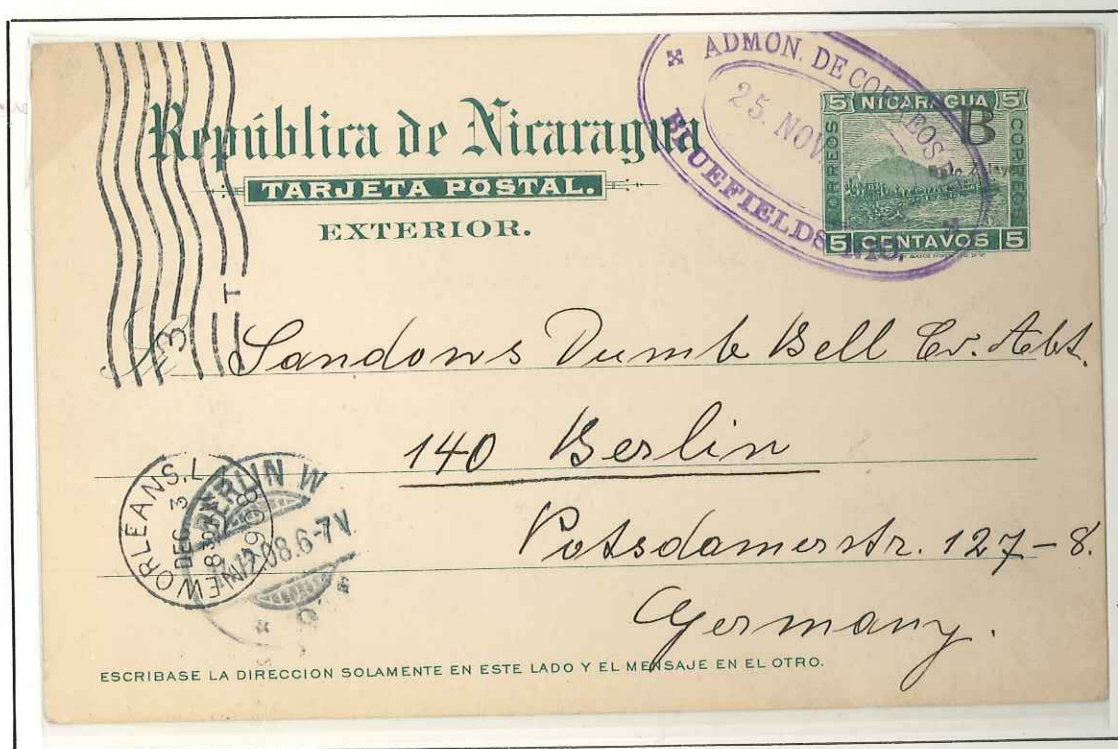 República de Nicaragua
TARJETA POSTAL.
EXTERIOR.
ADMON. DE CORREOS
25. NOV.
BLUEFIELDS NIC.
5 NICARAGUA 5
CORREOS
CORREOS
B
5 CENTAVOS 5
T
3
Sandows Dumb Bell Co. Abt.
140 Berlin
Potsdamerstr. 127-8.
Germany.
NEW ORLEANS, L
DEC 3
830
1908
BERLIN W
12.08.6-7V
ESCRIBASE LA DIRECCION SOLAMENTE EN ESTE LADO Y EL MENSAJE EN EL OTRO.